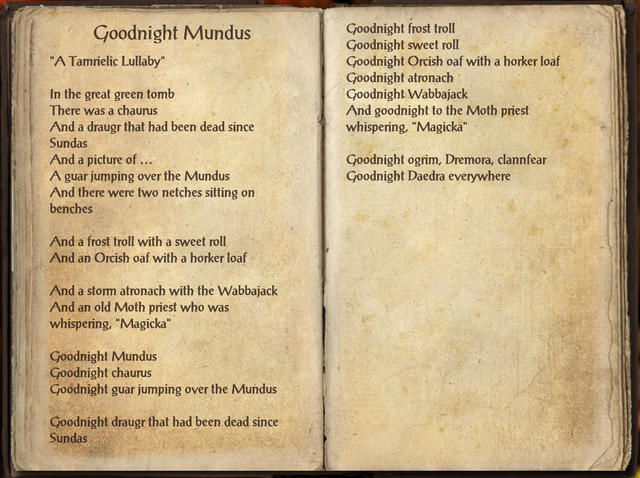 Goodnight Mundus
"A Tamrielic Lullaby"
In the great green tomb
There was a chaurus
And a draugr that had been dead since
Sundas
And a picture of ...
A guar jumping over the Mundus
And there were two netches sitting on
benches
And a frost troll with a sweet roll
And an Orcish oaf with a horker loaf
And a storm atronach with the Wabbajack
And an old Moth priest who was
whispering, "Magicka"
Goodnight Mundus
Goodnight chaurus
Goodnight guar jumping over the Mundus
Goodnight draugr that had been dead since
Sundas
Goodnight frost troll
Goodnight sweet roll
Goodnight Orcish oaf with a horker loaf
Goodnight atronach
Goodnight Wabbajack
And goodnight to the Moth priest
whispering, "Magicka"
Goodnight ogrim, Dremora, clannfear
Goodnight Daedra everywhere